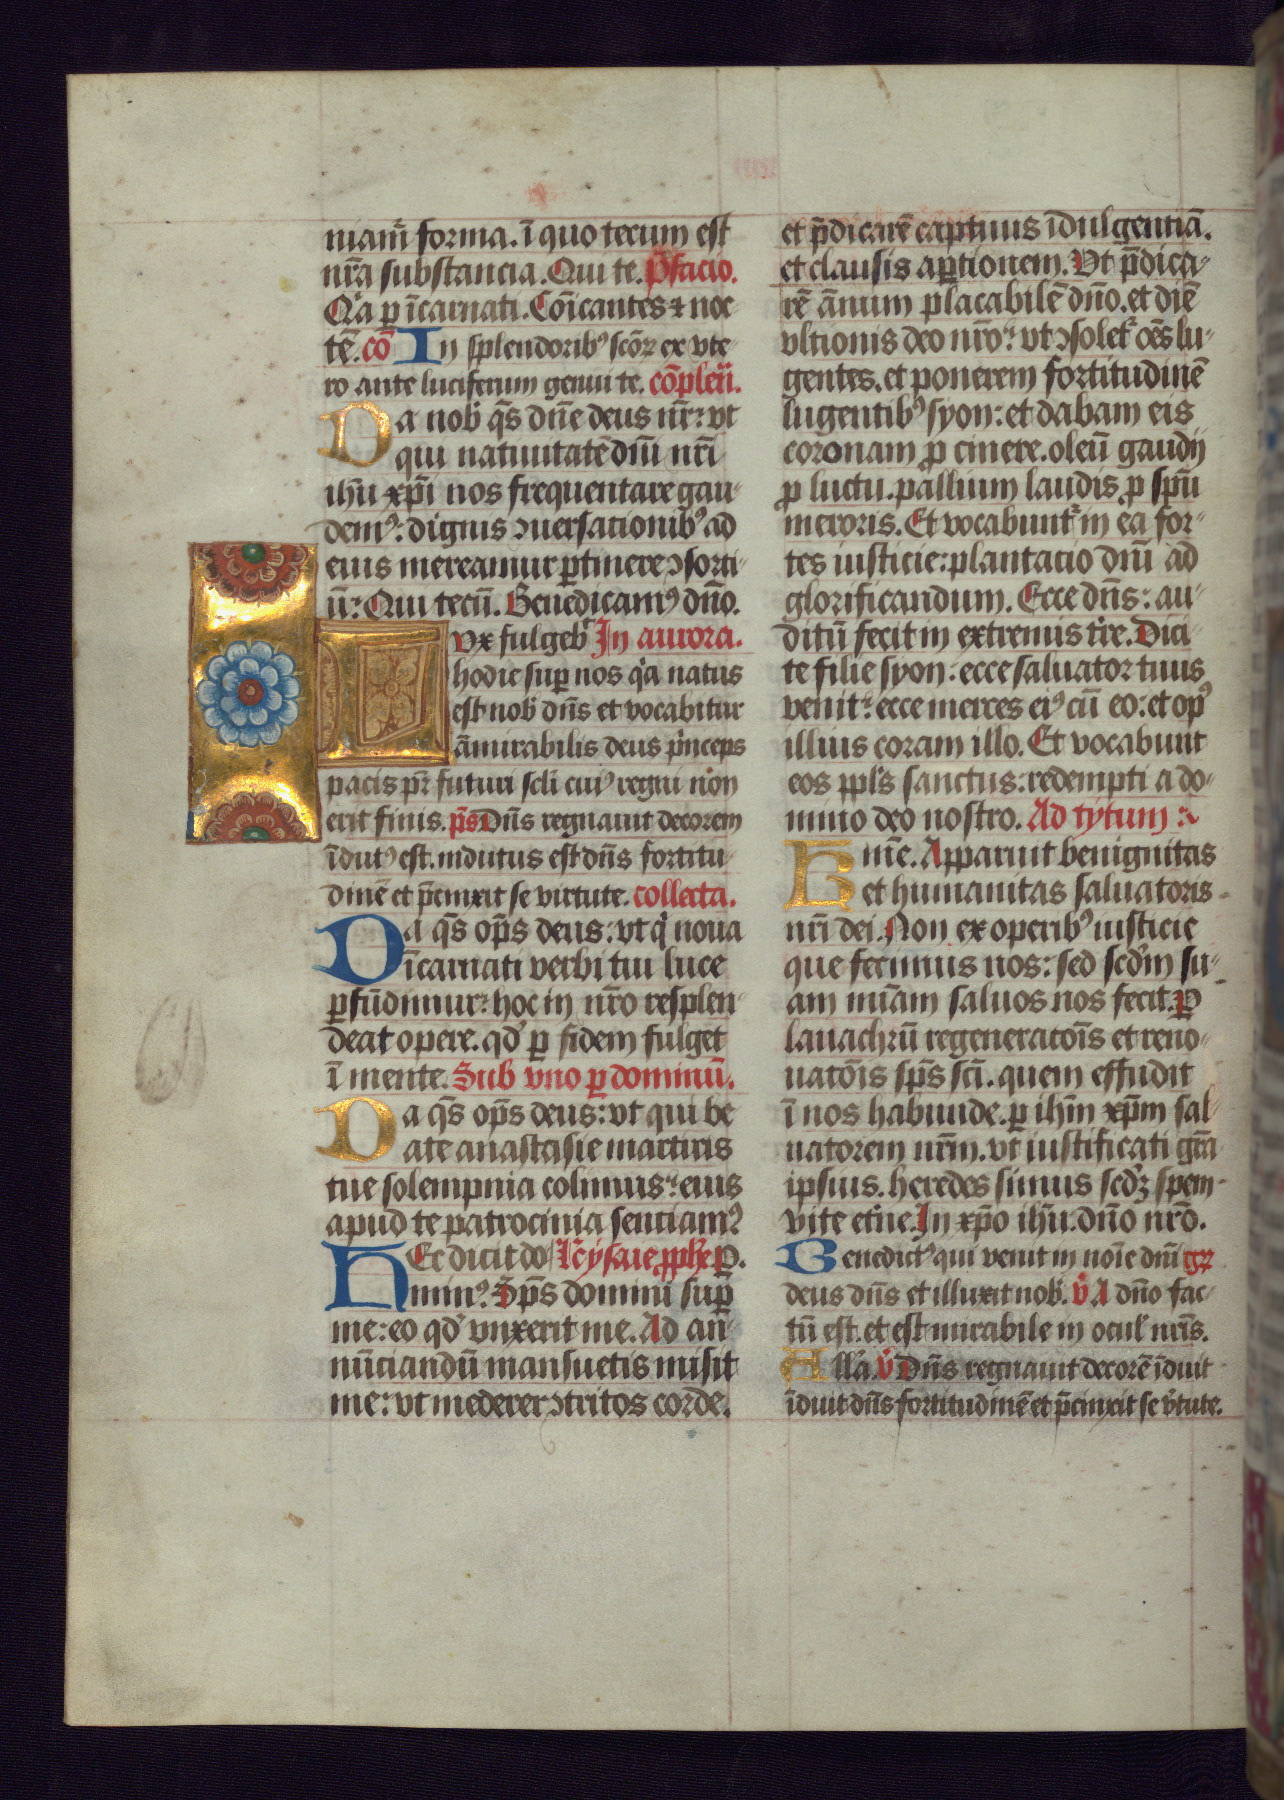 niam̄ forma. ī quo tecum est
nr̄a substancia. Qui te. p̄facio.
Qͥa p īcarnati. Cōīcantes ⁊ noc
tē. cō In splendoribꝰ scōꝝ ex vte
ro ante luciferum genui te. cōplen̄.
Da nob̄ qs̄ dn̄e deus nr̄: vt
qui natiuitatē dn̄i nr̄i
ih̄u xp̄i nos frequentare gau
demꝰ: dignis ꝯuersationibꝰ ad
eius mereamur ꝑtinere ꝯsorti
ū: Qui tecū. Benedicamꝰ dn̄o.
Lvx fulgeb̄ In aurora.
hodie suꝑ nos qͥa natus
est nob̄ dn̄s et vocabitur
āmirabilis deus pͥnceps
pacis pr̄ futuri scl̄i cuiꝰ regni non
erit finis. ps̄ Dn̄s regnauit decorem
īdutꝰ est. indutus est dn̄s fortitu
dinē et p̄cinxit se virtute. collecta.
Da qs̄ op̄s deus: vt qͥ noua
īcarnati verbi tui luce
ꝑfūdimur: hoc in nr̄o resplen
deat opere. qd̓ ꝑ fidem fulget
ī mente. Sub vno ꝑ dominū.
Da qs̄ op̄s deus: vt qui be
ate anastasie martiris
tue solempnia colimus: eius
apud te patrocinia sentiamꝰ
HEc dicit do Lc̄ ysaie ꝓph̄e D.
minꝰ. Sp̄s domini suꝑ
me: eo qd̓ vnxerit me. Ad an̄
nūciandū mansuetis misit
me: vt mederer ꝯtritos corde.
et p̄dicarē captiuis īdulgentiā.
et clausis aꝑtionem. Vt p̄dica
rē ānum placabilē dn̄o. et diē
vltionis deo nr̄o: vt ꝯsoler̄ oēs lu
gentes. et ponerem fortitudinē
lugentibꝰ syon: et dabam eis
coronam ꝓ cinere. oleū gaudij
ꝓ luctu. pallium laudis ꝓ sp̄u
meroris. Et vocabunt̄ in ea for
tes iusticie: plantacio dn̄i ad
glorificandum. Ecce dn̄s: au
ditū fecit in extremis tr̄re. Dici
te filie syon: ecce saluator tuus
venit: ecce merces eiꝰ cū eo: et opꝰ
illius coram illo. Et vocabunt
eos ppl̄s sanctus: redempti a do
mino deo nostro. Ad tytum:
Kn̄e. Apparuit benignitas
et humanitas saluatoris
nr̄i dei. Non ex operibꝰ iusticie
que fecimus nos: sed scd̓m su
am miam̄ saluos nos fecit. ꝑ
lauachrū regeneratōis et reno
uatōis sp̄s sc̄i. quem effudit
ī nos habunde. ꝑ ih̄m xp̄m sal
uatorem nr̄m. vt iustificati gr̄a
ipsius. heredes simus scd̓ꝫ spem
vite et̓ne. In xp̄o ih̄u. dn̄o nr̄o.
Benedictꝰ qui venit in noīe dn̄i gr̄
deus dn̄s et illuxit nob̄. v̄ A dn̄o fac
tū est. et est mirabile in ocul̄ nr̄is.
All̓a. v̄ Dn̄s regnauit decorē īduit
īduit dn̄s fortitudinē et p̄cinxit se v̓tute.